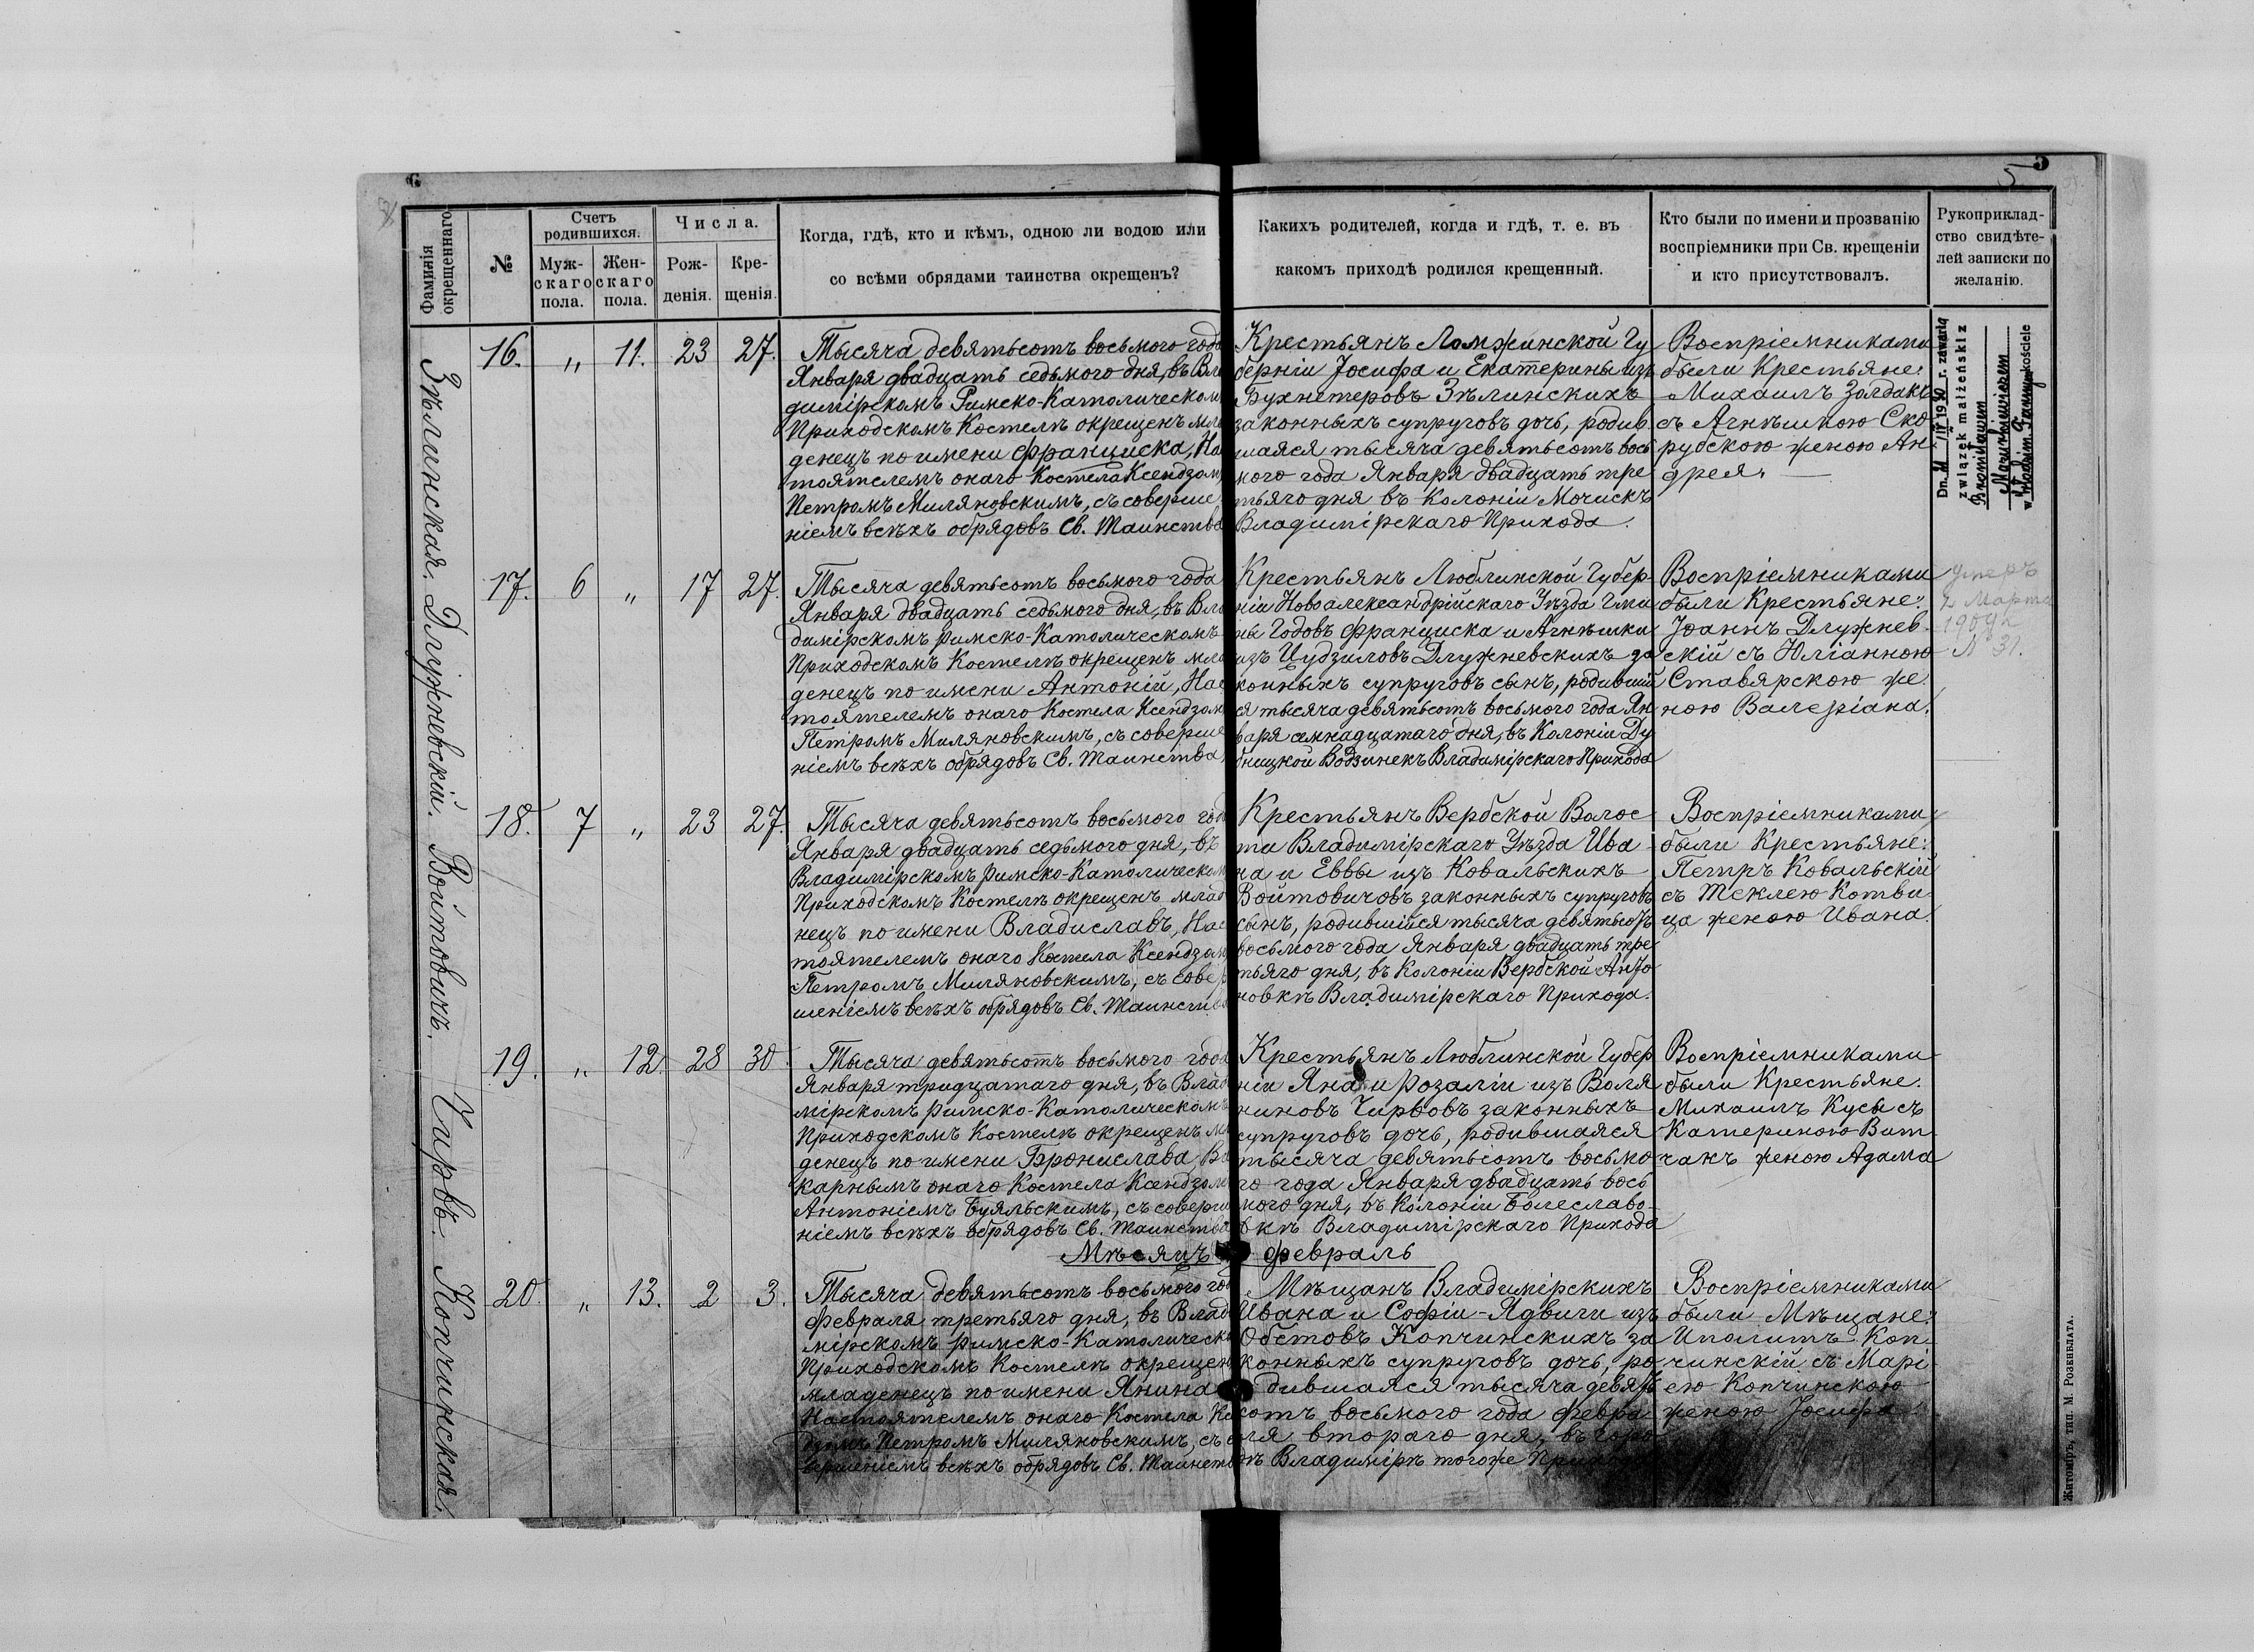 5
Фамилія окрещеннаго
№
Счетъ родившихся.
Мужскаго пола.
Женскаго пола.
Числа.
Рожденія.
Крещенія.
Когда, гдѣ, кто и кѣмъ, одною ли водою или
со всѣми обрядами таинства окрещенъ?
Какихъ родителей, когда и гдѣ, т. е. въ
какомъ приходѣ родился крещенный.
Кто были по имени и прозванію
воспріемники при Св. крещеніи
и кто присутствовалъ.
Рукоприклад-
ство свидѣте-
лей записки по
желанію.
Зѣлинская.
16. „ 11. 23 27.
Тысяча девятьсотъ восьмого года
Января двадцать седьмого дня, въ Вла
димірскомъ Римско-Католическом
Приходскомъ Костелѣ окрещенъ мла
денецъ по имени Франциска, На
тоятелемъ онаго Костела Ксендзом
Петромъ Миляновскимъ, съ соверше
ніемъ всѣхъ обрядовъ Св. Таинства
Крестьянъ Ломжинской Гу
берніи Іосифа и Екатерины изъ
Бухнтеровъ Зѣлинскихъ
законныхъ супруговъ дочь, родив
шаяся тысяча девятьсотъ вось
мого года Января двадцать тре
тьяго дня въ Колоніи Мочискъ
Владимірскаго Прихода.
Воспріемниками
были Крестьяне:
Михаилъ Золдакъ
съ Агнѣшкою Ско
рубскою женою Ан
дрея.
Dn. 11 IV 1930 r. zawarła
związek małżeński z
Bronisławem
w kościele
Длужневскій.
17. 6 „ 17 27.
Тысяча девятьсотъ восьмого года
Января двадцать седьмого дня, въ Вла
димірскомъ Римско-Католическомъ
Приходскомъ Костелѣ окрещенъ мла
денецъ по имени Антоній, Нас
тоятелемъ онаго Костела Ксендзом
Петромъ Миляновскимъ, съ соверше
ніемъ всѣхъ обрядовъ Св. Таинства,
Крестьянъ Люблинской Губер-
ніи Новоалександрійскаго Уѣзда Гми
ны Годовъ Франциска и Агнѣшки
изъ Цудзиловъ Длужневскихъ за
конныхъ супруговъ сынъ, родивший
ся тысяча девятьсотъ восьмого года Ян
варя семнадцатаго дня, въ Колоніи Ду
бницкой Водзинекъ Владимірскаго Прихода
Воспріемниками
были Крестьяне:
Іоаннъ Длужнев
скій съ Юліанною
Ставярскою же
ною Валеріана.
умеръ
2 Марта
1909 г.
N 31.
Войтовичъ.
18. 7 „ 23 27.
Тысяча девятьсотъ восьмого год
Января двадцать седьмого дня, въ
Владимірскомъ Римско-Католическом
Приходскомъ Костелѣ окрещенъ млад
нецъ по имени Владиславъ, Нас
тоятелемъ онаго Костела Ксендзом
Петромъ Миляновскимъ, съ совер
шеніемъ всѣхъ обрядовъ Св. Таинства
Крестьянъ Вербской Волос
ти Владимірскаго Уѣзда Ива
на и Еввы изъ Ковальскихъ
Войтовичовъ законныхъ супруговъ
сынъ, родившійся тысяча девятьсотъ
восьмого года Января двадцать тре
тьяго дня, въ Колоніи Вербской Анто
новкѣ Владимірскаго Прихода.
Воспріемниками
были Крестьяне:
Петръ Ковальскій
съ Теклею Котви
ца женою Ивана.
Чирвъ.
19. „ 12. 28 30.
Тысяча девятьсотъ восьмого года
Января тридцатаго дня, въ Влад
мірскомъ Римско-Католическомъ
Приходскомъ Костелѣ окрещенъ мл
денецъ по имени Бронислава, Ви
карнымъ онаго Костела Ксендзом
Антоніемъ Буяльскимъ, съ соверше
ніемъ всѣхъ обрядовъ Св. Таинства
Крестьянъ Люблинской Губер
ніи Яна и Розаліи изъ Воля
ниновъ Чирвовъ законныхъ
супруговъ дочь, родившаяся
тысяча девятьсотъ восьмо
го года Января двадцать вось
мого дня, въ Колоніи Болеславо-
вкѣ Владимірскаго Прихода
Воспріемниками
были Крестьяне.
Михаилъ Кусы съ
Катериною Вит
чакъ женою Адама
Мѣсяцъ Февраль
Копчинская.
20. „ 13. 2 3.
Тысяча девятьсотъ восьмого год
Февраля третьяго дня, въ Влад
мірскомъ Римско-Католическо
Приходскомъ Костелѣ окрещен
младенецъ по имени Янина
Настоятелемъ онаго Костела Ксе
дзомъ Петромъ Миляновскимъ, съ со
вершеніемъ всѣхъ обрядовъ Св. Таинств
Мѣщанъ Владимірскихъ
Ивана и Софіи-Ядвиги изъ
Обстовъ Копчинскихъ за
конныхъ супруговъ дочь, ро
дившаяся тысяча девять
сотъ восьмого года Февра
ля второго дня, въ горо
дѣ Владимірѣ тогоже
Воспріемниками
были Мѣщане:
Иполитъ Коп
чинскій съ Марі
ею Копчинскою
женою Іосифа.
Житомиръ, тип. М. Розенблата.